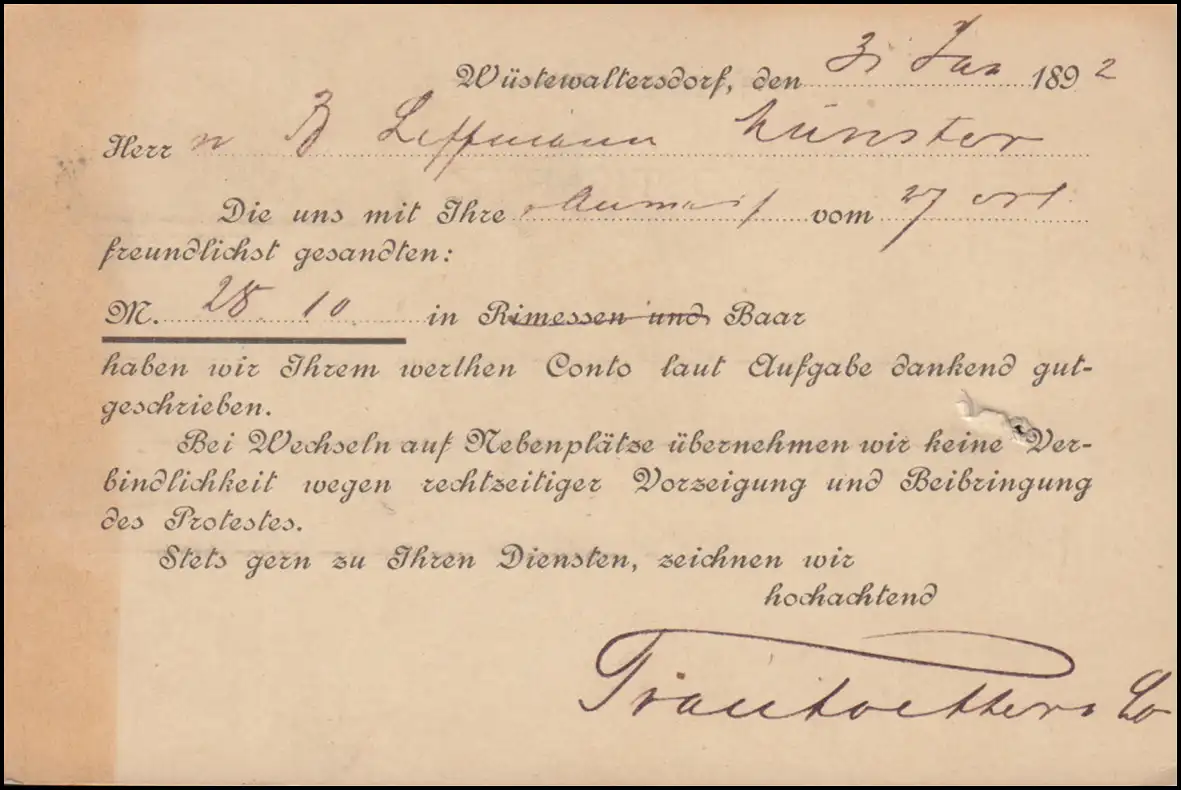 Wüstewaltersdorf, den 3. Jan 1892
Herrn B Leffmann Münster
Die uns mit Ihre vom 27
freundlichst gesandten:
M. 28. 10 in Rimessen und Baar
haben wir Ihrem werthen Conto laut Aufgabe dankend gut-
geschrieben.
Bei Wechseln auf Nebenplätze übernehmen wir keine Ver-
bindlichkeit wegen rechtzeitiger Vorzeigung und Beibringung
des Protestes.
Stets gern zu Ihren Diensten, zeichnen wir
hochachtend
Co